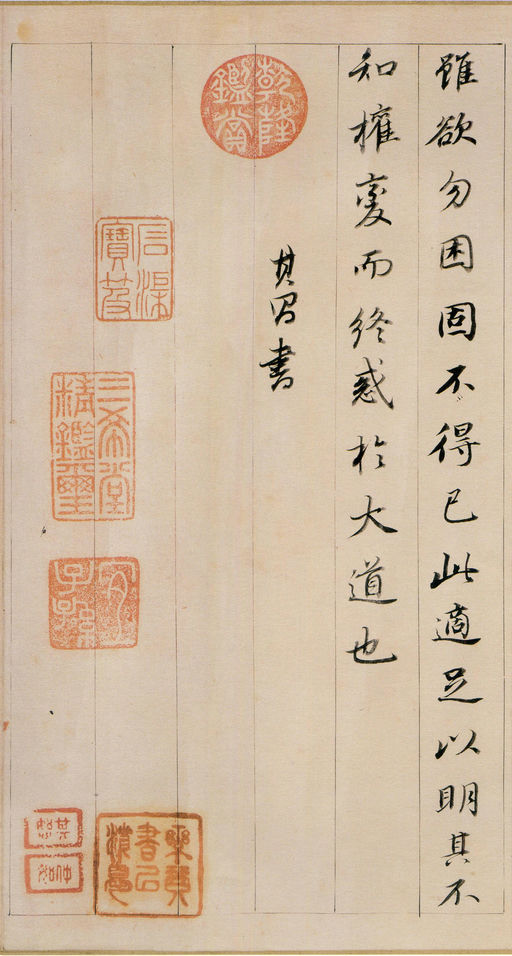 雖欲勿困固不得已此適足以明其不
知權變而終惑於大道也
其昌書
乾隆鑑賞
三希堂精鑑璽
宜子孫